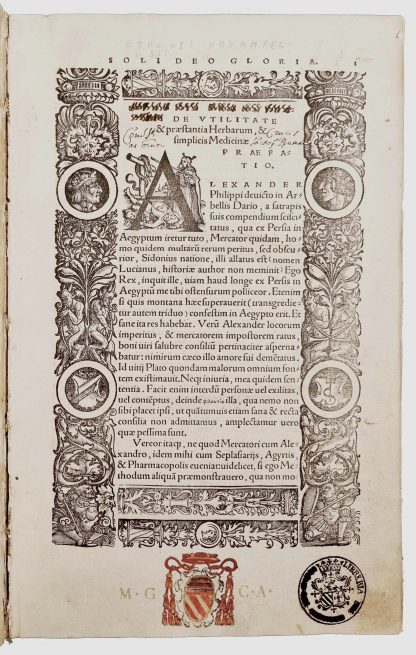 SOLI DEO GLORIA. 1
DE VTILITATE
& præstantia Herbarum, &
simplicis Medicinæ
PRÆFA-
TIO.
ALEXANDER
Philippi deuicto in Ar-
bellis Dario, a satrapis
suis compendium scisci-
tatus, qua ex Persia in
Aegyptum iretur tuto, Mercator quidam, ho-
mo quidem multarū rerum peritus, sed obscu-
rior, Sidonius natione, illi allatus est (nomen
Lucianus, historiæ author non meminit) Ego
Rex, inquit ille, uiam haud longe ex Persis in
Aegyptū me tibi ostensurum polliceor. Etenim
si quis montana hæc superauerit (transgredie-
tur autem triduo) confestim in Aegypto erit. Et
sane ita res habebat. Verū Alexander locorum
imperitus, & mercatorem impostorem ratus,
boni uiri salubre consiliū pertinaciter asperna-
batur: nimirum cæco illo amore sui demētatus.
Id uitij Plato quondam malorum omnium fon-
tem existimauit. Necq; iniuria, mea quidem sen-
tentia. Facit enim interdū personæ uel exilitas,
uel contēptus, deinde illa, qua nemo non
sibi placet ipsi, ut quātumuis etiam sana & recta
consilia non admittamus, amplectamur uero
quæ pessima sunt.
Vereor itaq;, ne quod Mercatori cum Ale-
xandro, idem mihi cum Seplasiarijs, Agyrtis,
& Pharmacopolis eueniat: uidelicet, si ego Me-
thodum aliquā præmonstrauero, qua non mo
M. G. C. A.
LIBRERIA